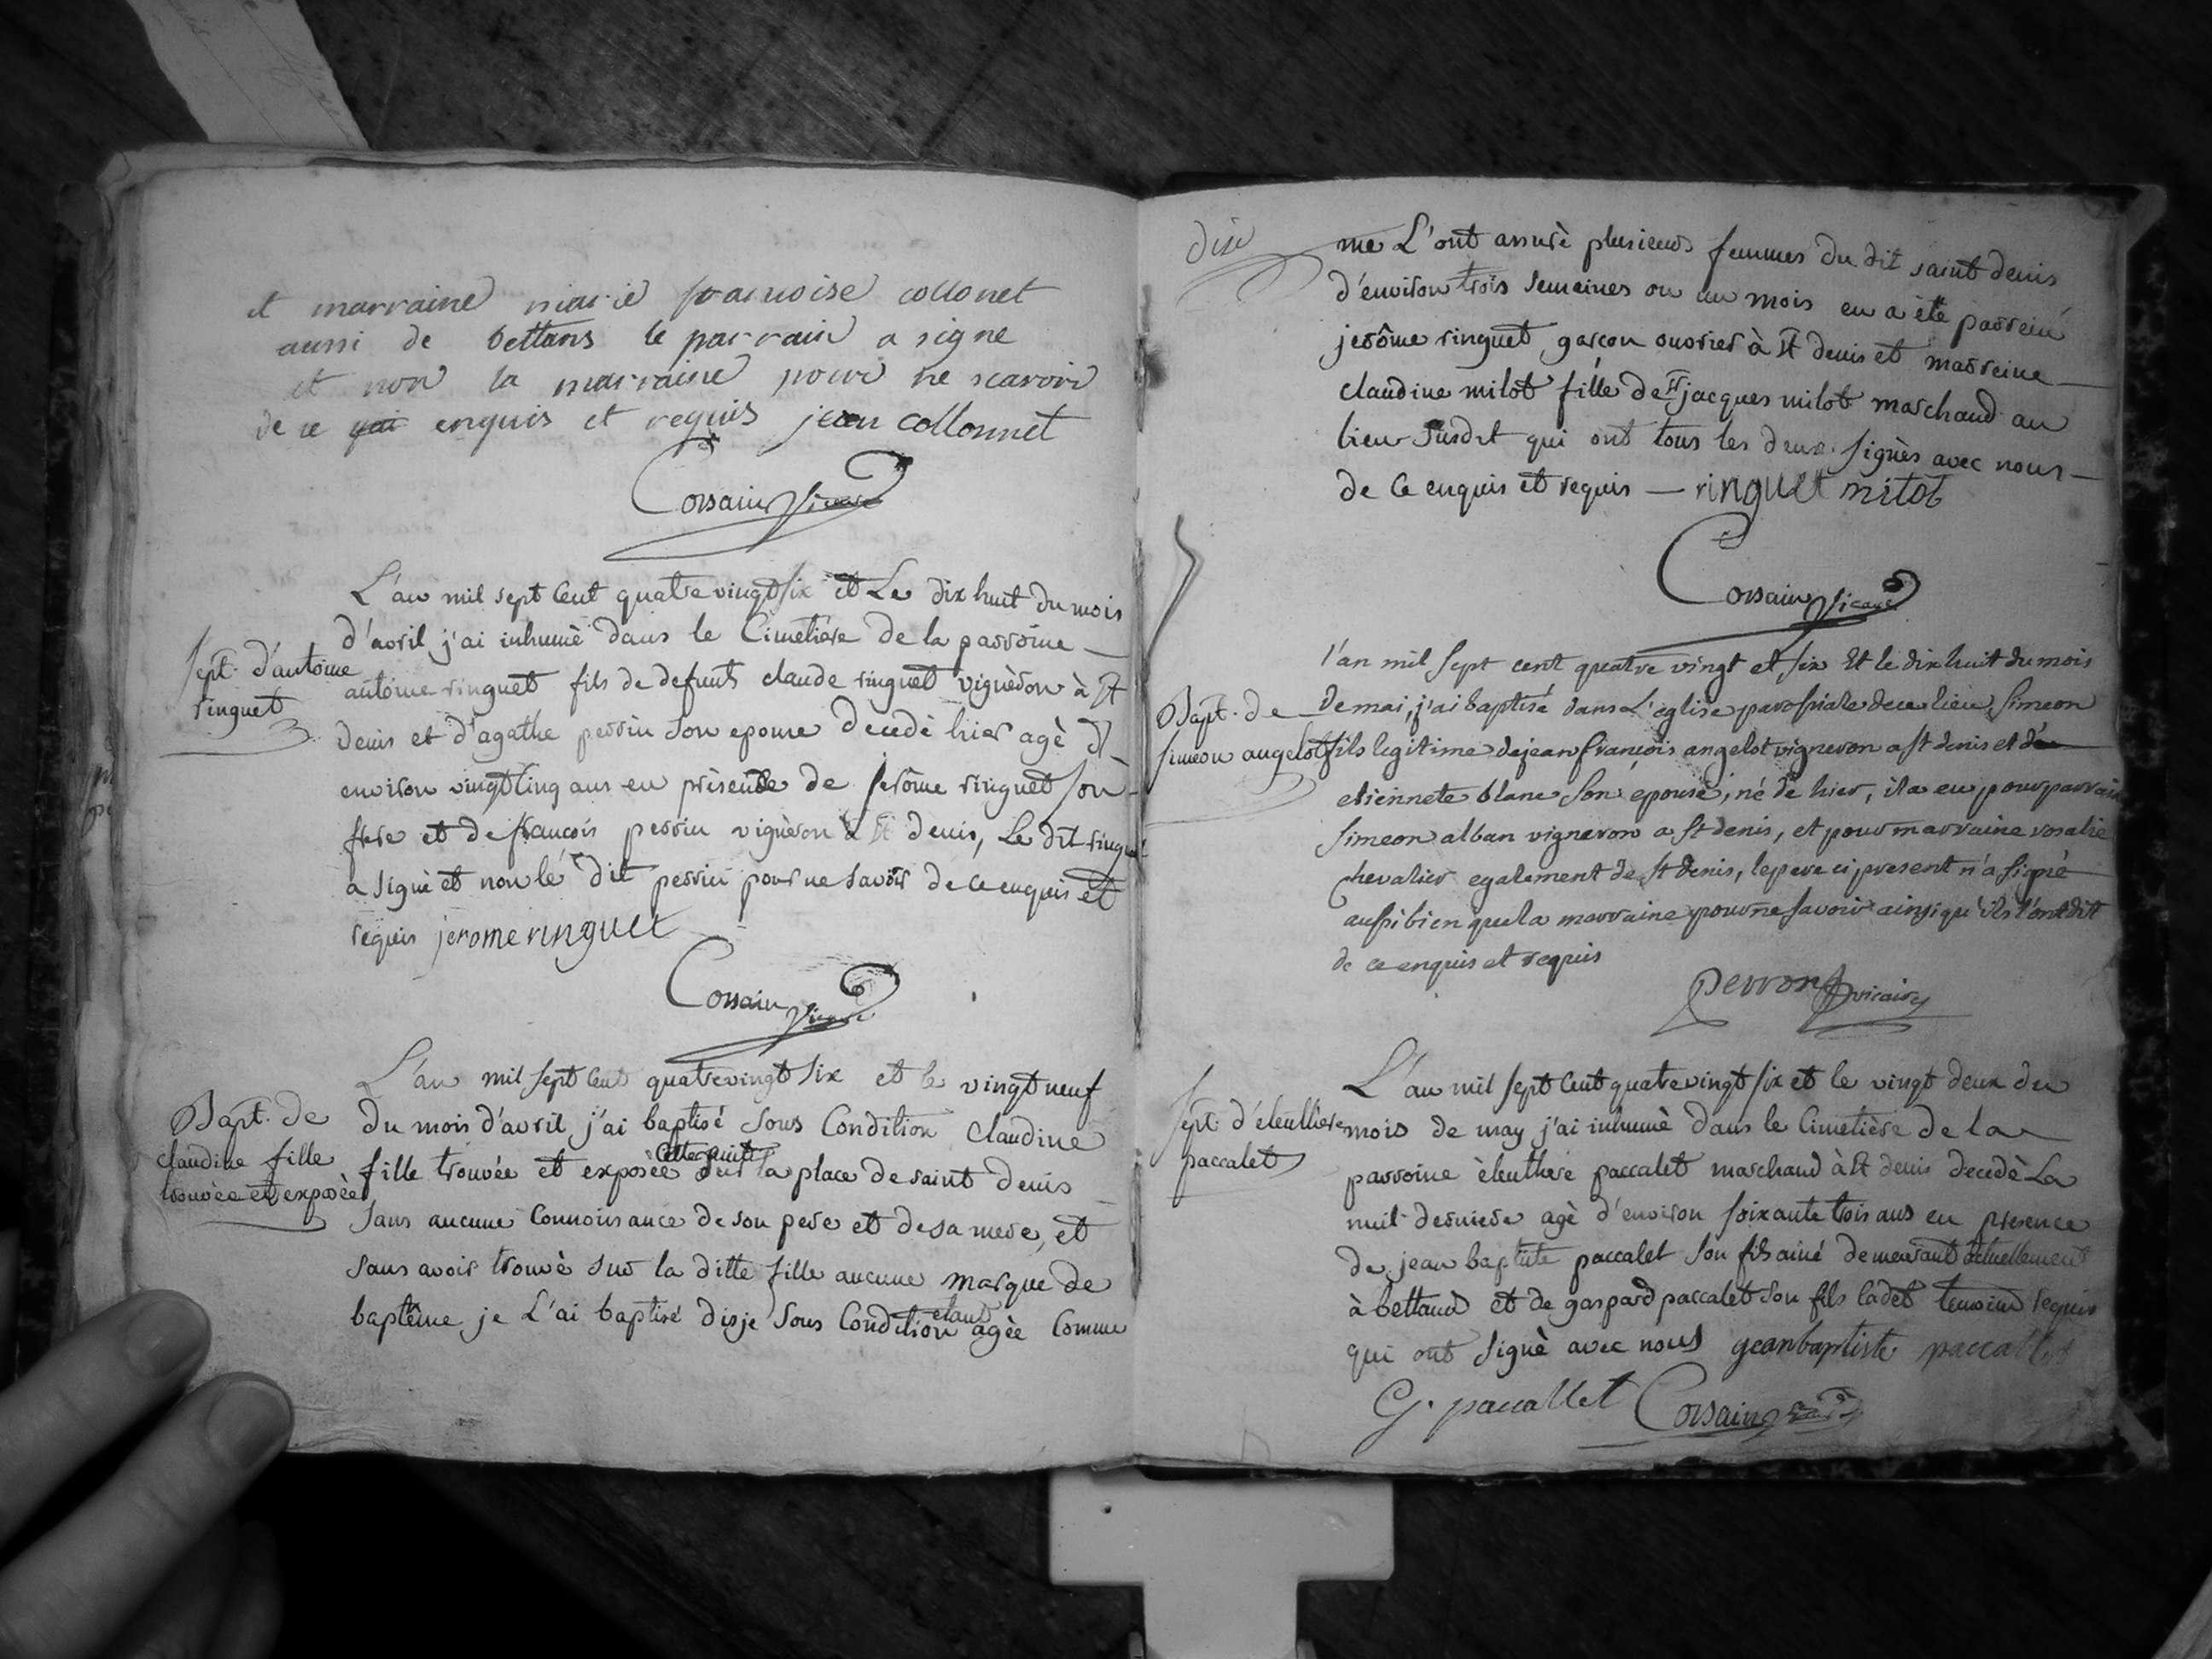 et marraine marie francoise collonet
aussi de bettans le parrain a signe
et non la marraine pour ne scavoir
de ce qui enquis et requis jean collonnet
Corsain vicaire
L'an mil sept cent quatre vingt six et Le dix huit du mois
d'avril j'ai inhumè dans le Cimetière de la parroine
Sept. d'antoine
ringuet
antoine ringuet fils de defunts claude ringuet vignèron à St
denis et d'agathe perrin son epouse decedè hier agè d'
environ vingt cinq ans en prèsence de jerôme ringuet son
frere et de francois perrin vignèron à St denis, Le dit ringuet
a signè et non le dit perrin pour ne savoir de ce enquis et
requis jerome ringuet
Corsain vicaire
L'an mil sept cent quatre vingt six et le vingt neuf
Bapt. de
claudine fille
trouvèe et exposèe
du mois d'avril j'ai baptisé sous Condition claudine
cette nuit
fille trouvée et exposèe sur la place de saint denis
sans aucune Connoissance de son pere et de sa mere, et
sans avoir trouvè sur la ditte fille aucune marque de
baptême je L'ai baptisé disje sous Condition agèe Comme
etant
dix
me L'ont assurè plusieurs femmes du dit saint denis
d'environ trois semaines ou un mois en a ètè parrein
jerôme ringuet garcon ouvrier à St denis et marreine
claudine milot fille de Sr jacques milot marchand au
lieu susdit qui ont tous les deux signès avec nous
de Ce enquis et requis — ringuet milot
Corsain vicaire
l'an mil sept cent quatre vingt et six Et le dix huit du mois
Bapt. de
simeon angelot
de mai, j'ai baptisé dans L'eglise parossiale de ce lieu, simeon
fils legitime de jean françois angelot vigneron a st denis et de
etiennete blanc son epouse, né de hier, il a eu pour parrain
simeon alban vigneron a st denis, et pour marraine rosalie
chevalier egalement de st denis, le pere ci present n'a signé
aussi bien que la marraine pour ne savoir ainsi qu'ils l'ont dit
de ce enquis et requis
perron vicaire
L'an mil sept Cent quatre vingt six et le vingt deux du
Sept. d'eleuthère
paccalet
mois de may j'ai inhumè dans le Cimetière de la
parroine èleuthere paccalet marchand à St denis decedè La
nuit derniere agè d'environ soixante trois ans en presence
de jean baptiste paccalet son fils ainé demeurant actuellement
à bettand et de gaspard paccalet son fils Cadet temoins requis
qui ont signè avec nous jean baptiste paccallet
G. paccallet Corsain vicaire